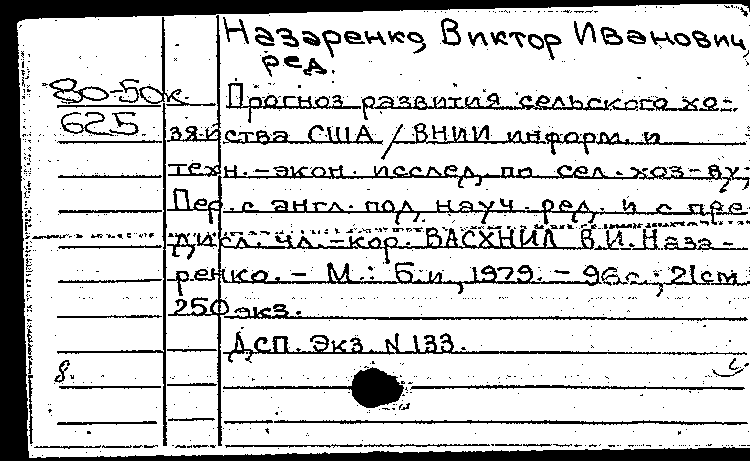 Назаренко, Виктор Иванович,
ред.
80-50к.
625
Прогноз развития сельского хо-
зяйства США / ВНИИ информ. и
техн.-экон. исслед. по сел. хоз-ву;
Пер. с англ. под науч. ред. и с пре-
дисл. чл.-кор. ВАСХНИЛ В.И. Наза-
ренко. - М.: Б.и., 1979. - 96с.; 21см
250 экз.
ДСП. Экз. N 133.
8.